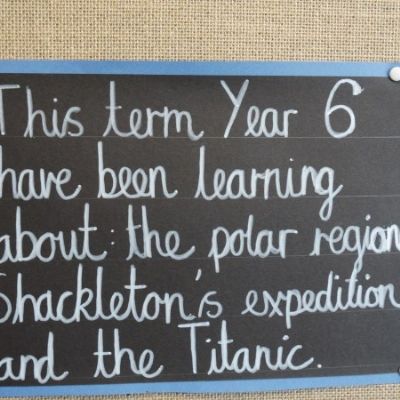 This term Year 6
have been learning
about: the polar region
Shackleton's expedition
and the Titanic.